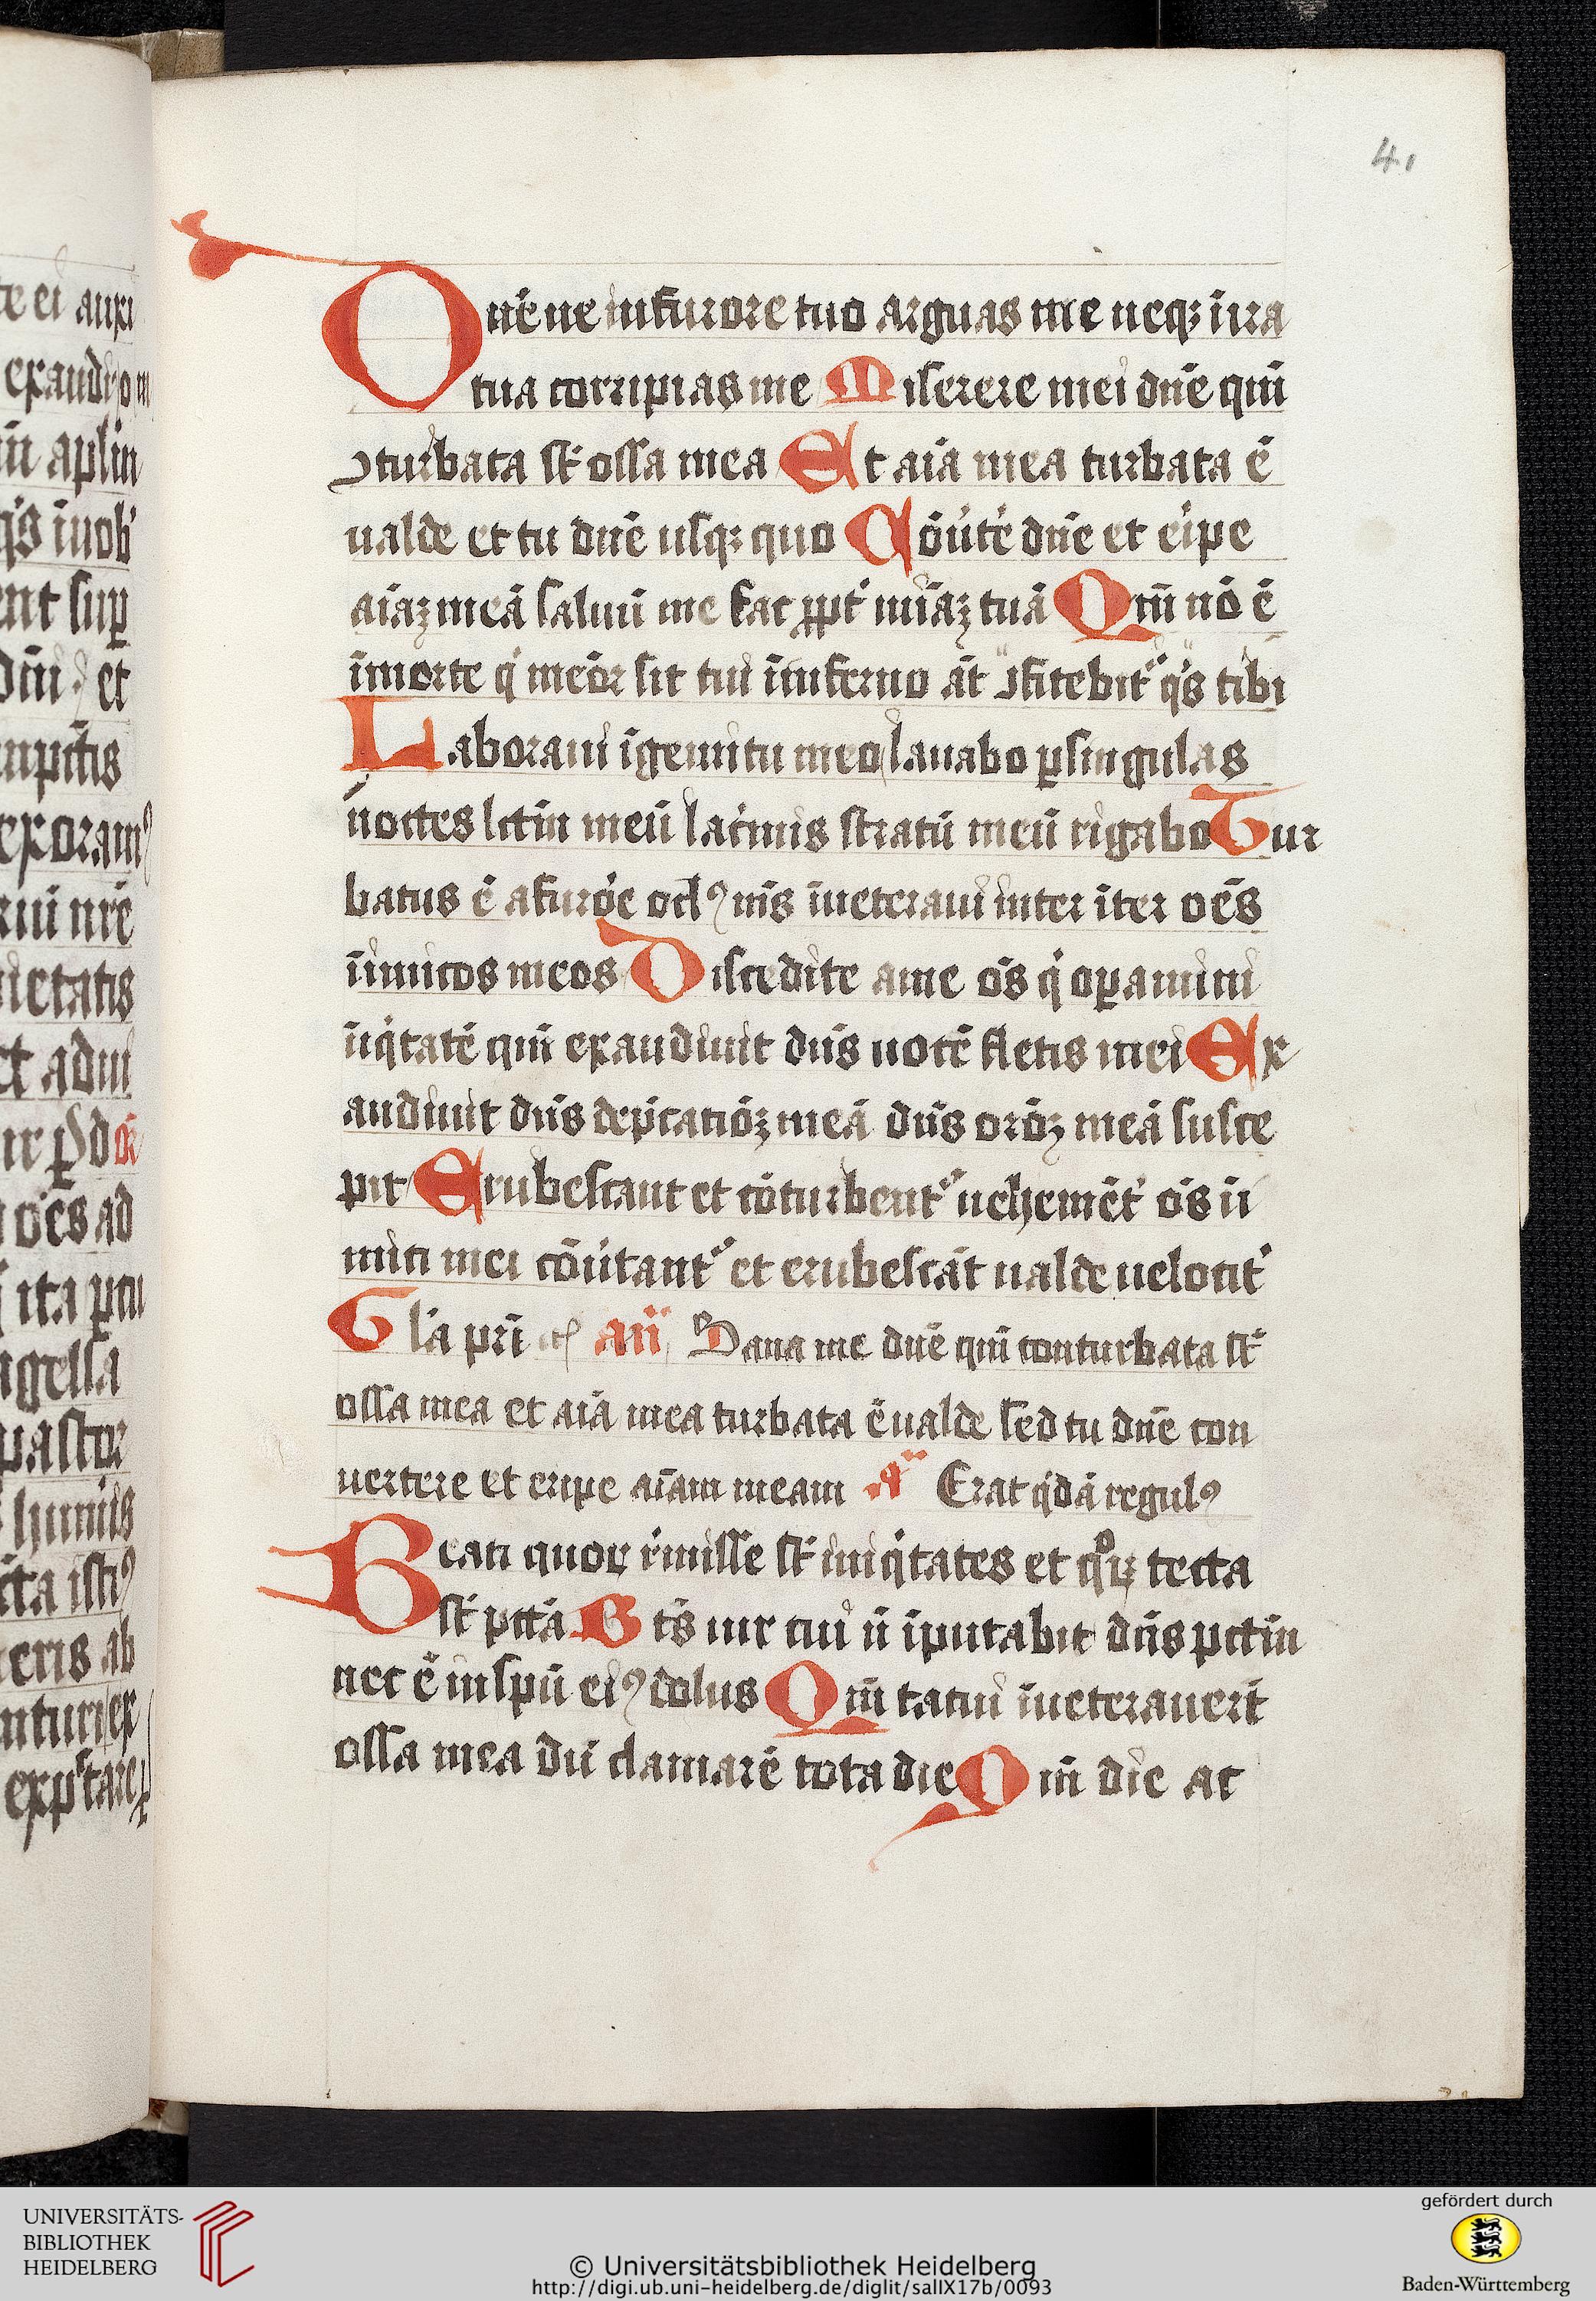 41
Dn̄e ne in furore tuo arguas me neqꝫ ī ira
tua corripias me Miserere mei dn̄e qm̄
ꝯturbata st̄ ossa mea Et aīa mea turbata ē
ualde et tu dn̄e usqꝫ quo Cōu̇te dn̄e et eipe
aīaꝫ meā saluū me fac ꝓpt̄ mīaꝫ tuā Qm̄ nō ē
ī morte q̇ meōr sit tui ī inferno āt ꝯfitebit᷑ q̇s tibi
Laboraui ī gemitu meo lauabo ꝑ singulas
noctes lctm̄ meū lac̄mis stratū meū rigabo Tur
batus ē a furōe oclꝰ m̄s īueteraui inter īter oēs
īimicos meos Discedite a me oēs q̇ oꝑamini
īiq̇tatē qm̄ exaudiuit dn̄s uocē fletis mei Ex
audiuit dn̄s dep̄catiōꝫ meā dn̄s orōꝫ meā susce
pit Erubescant et cōturbent᷑ uehemēt̄ oēs īi
mici mei cōu̇tant᷑ et erubescāt ualde uelocit̄
Gl̄a pr̄i an̄ Sana me dn̄e qm̄ conturbata st̄
ossa mea et aīa mea turbata ē ualde sed tu dn̄e con
uertere et eripe aīam meam aͣ Erat q̇dā regulꝰ
Beati quoꝝ r̄misse st̄ iniq̇tates et qͦꝝ tecta
st̄ pctā Bt̄s uir cui n̄ īputabit dn̄s pctm̄
nec ē in spū eiꝰ dolus Qm̄ tacui īueterauerūt
ossa mea dū clamarē tota die Qm̄ die ac
UNIVERSITÄTS-
BIBLIOTHEK
HEIDELBERG
© Universitätsbibliothek Heidelberg
http://digi.ub.uni-heidelberg.de/diglit/salIX17b/0093
gefördert durch
Baden-Württemberg